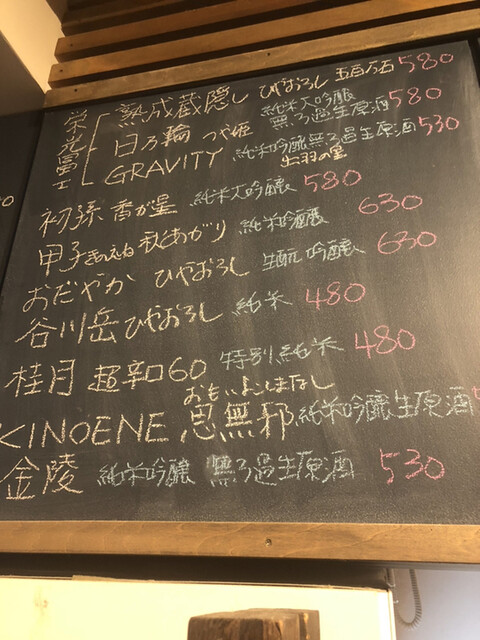 栄光冨士 熟成蔵隠し ひやおろし 五百万石 580
日乃輪 つや姫 純米大吟醸 無ろ過生原酒 580
GRAVITY 純米吟醸無ろ過生原酒 出羽の里 530
初孫 香が星 純米大吟醸 580
甲子きのえね 秋あがり 純米吟醸 630
おだやか ひやおろし 生酛 吟醸 630
谷川岳 ひやおろし 純米 480
桂月 超辛口60 特別純米 480
おもいよこしまなし
KINOENE 思無邪 純米吟醸生原酒
金陵 純米吟醸 無ろ過生原酒 530